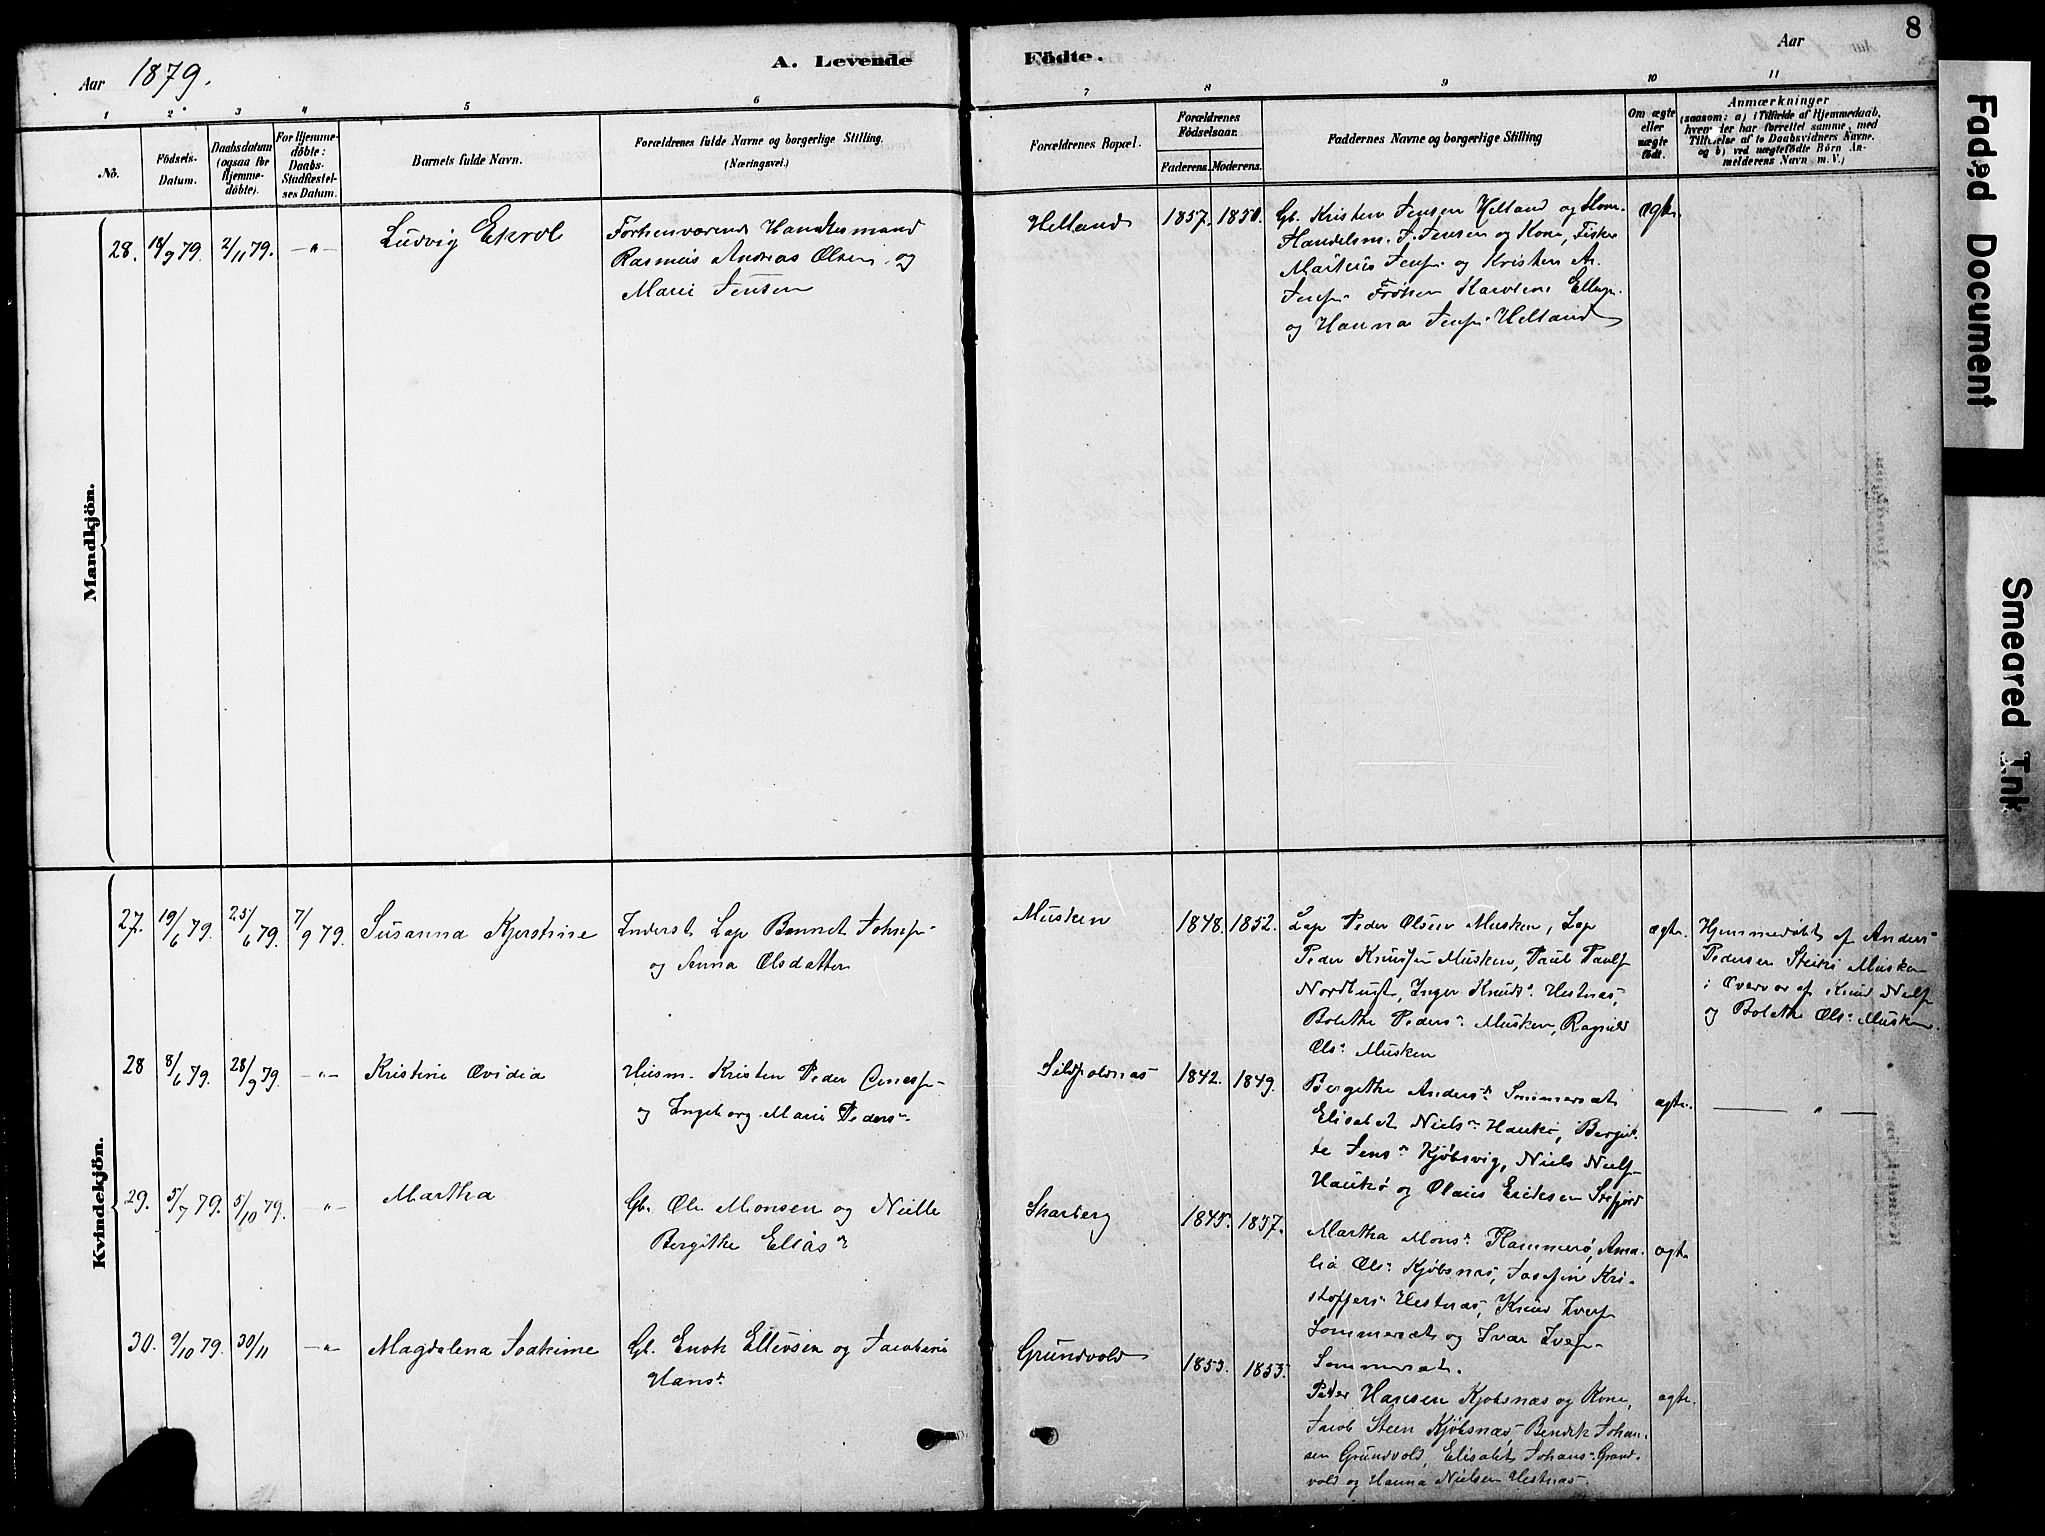 8
Aar 1879.
A. Levende
Födte.
Aar
1 2 3 4 5 6 7 8 9 10 11
No.
Födsels-Datum.
Daabsdatum (ogsaa for Hjemme-döbte).
For Hjemme-döbte: Daabs-Stadfæstel-ses Datum.
Barnets fulde Navn.
Forældrenes fulde Navne og borgerlige Stilling.
(Næringsvei.)
Forældrenes Bopæl.
Forældrenes Födselsaar.
Faderens. Moderens.
Faddernes Navne og borgerlige Stilling
Om ægte eller uægte födt.
Anmærkninger
(saasom: a) i Tilfælde af Hjemmedaab,
hvem der har forrettet samme, med
Tilföielse af to Daabsvidners Navne.
og b) ved uægtefödte Börn An-
melderens Navn m. V.)
Mandkjön.
28. 18/9 79. 2/11 79. —"— Ludvig Ekrol
Forhenværende Handelsmand
Rasmus Andreas Olsen og
Marie Jensen
Helland 1857. 1850.
Gb. Kristen Jensen Helland og Kone.
Handelsm. J. Jensen og Kone, Fisker
Martin Jens. og Kristen An.
Jens. Frøken Karoline Ellings.
og Hanna Jens. Helland
ægte.
Kvindekjön.
27. 19/6 79. 25/6 79. 7/9 79. Susanna Kjerstine
Inderst Lap Bennet Johns.
og Anna Olsdatter
Musken 1848. 1852.
Lap Peder Olsen Musken, Lap
Peder Knuds. Musken, Paul Pauls.
Nordbugt, Inger Knuds. Hestnas,
Bolette Peders. Musken, Ragnild
Ols. Musken
ægte.
Hjemmedøbt af Anders
Pedersen Musken
i Overvær af Knud Niels.
og Bolette Ols. Musken.
28 8/6 79. 28/9 79. —"— Kristine Ovidia
Husm. Kristen Peder
og Ingeborg Marie Peders.
1842. 1849.
Bergithe Anders. Sommersæt
Elisabet Niels. Haukø, Bergit-
te Jens. Kjøbsvig, Niels Niels.
Haukø og Olaus Eriksen Stefjord
ægte. — " —
29. 5/7 79. 5/10 79. "— Martha
Gb. Ole Monsen og Nille
Bergithe Elias.
Skarberg 1845. 1857.
Martha Mons. Hammerø, Ama-
lia Ols. Kjøbsnæs, Josefine Kri-
stoffers. Hestnæs, Knud Ivers.
Sommersæt og Ivar Ivers.
Sommersæt.
ægte.
30. 9/10 79. 30/11 —"— Magdalena Joakime
Gb. Enok Ellevsen og Jacobine
Hans.
Grundvold 1853. 1853.
Peder Hansen Kjøbsnæs og Kone,
Jacob Steen Kjøbsnæs, Bendik Johan-
sen Grundvold, Elisabet Johans. Grund-
vold og Hanna Nielsen Hestnæs.
ægte.
Faded Document
Smeared Ink